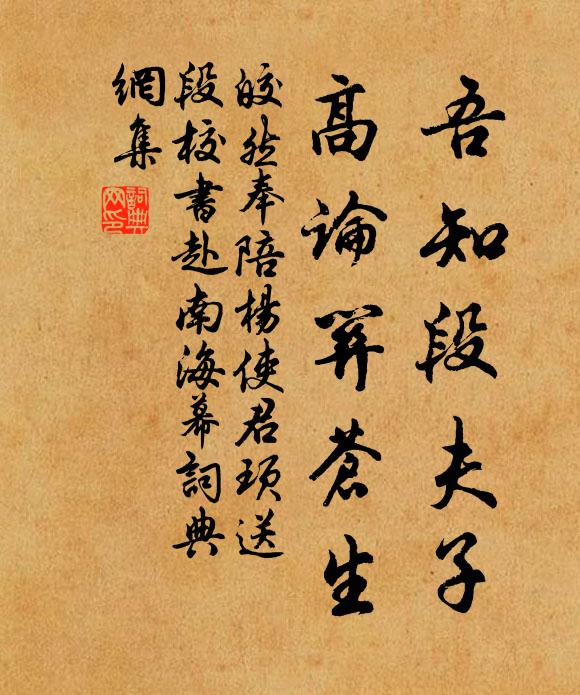 吾知段夫子
高論関蒼生
皎然奉陪楊使君頊送
段校書赴南海幕詞典
網集
詞典網印